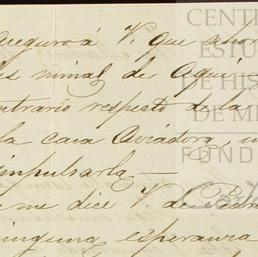 aseguro á V. que ahor
las minas de Aquí
contrario respecto de la
la casa Aviadora, 
impulsarla —
me dice V. de
ninguna esperanza
CENT
ESTU
DE HIS
DE M
FUND